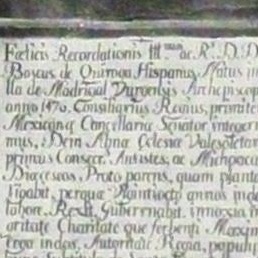 Fœlicis Recordationis Ill.mus ac R.s D. D.
Bascus de Quiroga Hispanus, Natus in
lla de Madrigal Burgensis Archepiscop
anno 1470. Consiliarius Regius, primite
Mexicanæ Cancellariæ Senator integerri
mus, Dein Almæ Eclesiæ Valesoletan
primus Consecr. Antistes, ac Michoaca
Diœceseos, Proto parens, quam plante
rigabit, perque Vigintiocto annos inde
labore, Rexit, Gubernabit, innoxia in
aritate Charitate que ferbenti Maxim
erga indos, Autoritate Regia, populi